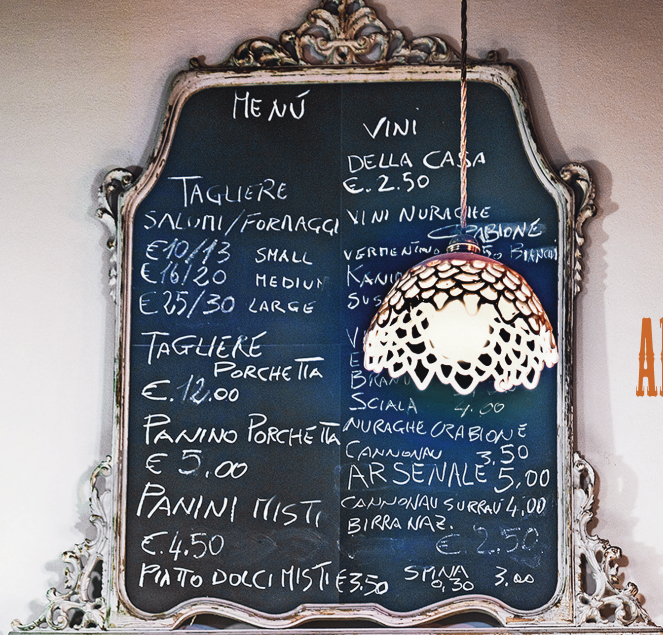 MENÚ
TAGLIERE
SALUMI/FORMAGGI
€10/13 SMALL
€16/20 MEDIUM
€25/30 LARGE
TAGLIERE
PORCHETTA
€.12.00
PANINO PORCHETTA
€ 5.00
PANINI MISTI
€.4.50
PIATTO DOLCI MISTI €3.50
VINI
DELLA CASA
€.2.50
VINI NURAGHE
CRABIONE
VERMENTINO
SCIALA 4.00
NURAGHE CRABIONE
CANNONAU 3.50
ARSENALE 5,00
CANNONAU SURRAU 4,00
BIRRA NAZ.
€ 2.50
SPINA 0,30 3,00